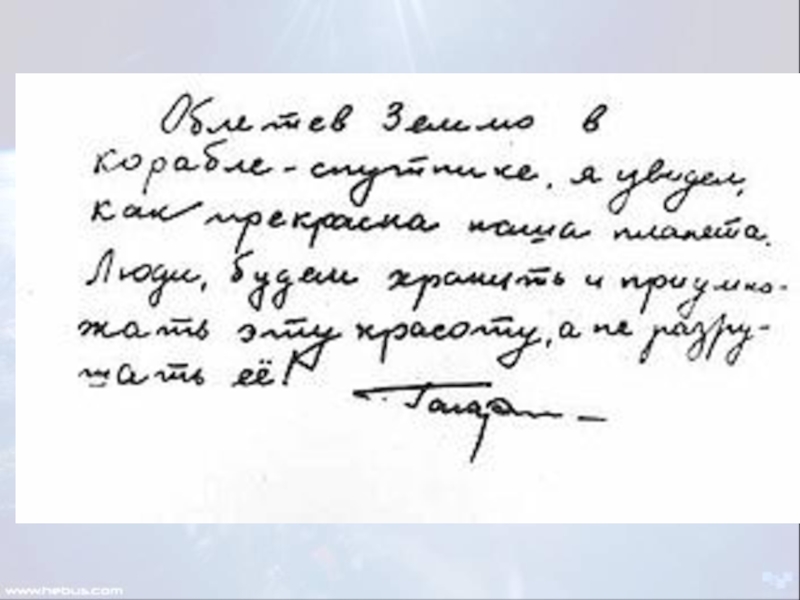 Облетев Землю в
корабле-спутнике, я увидел,
как прекрасна наша планета.
Люди, будем хранить и приумно-
жать эту красоту, а не разру-
шать её!
Гагарин
www.hebus.com